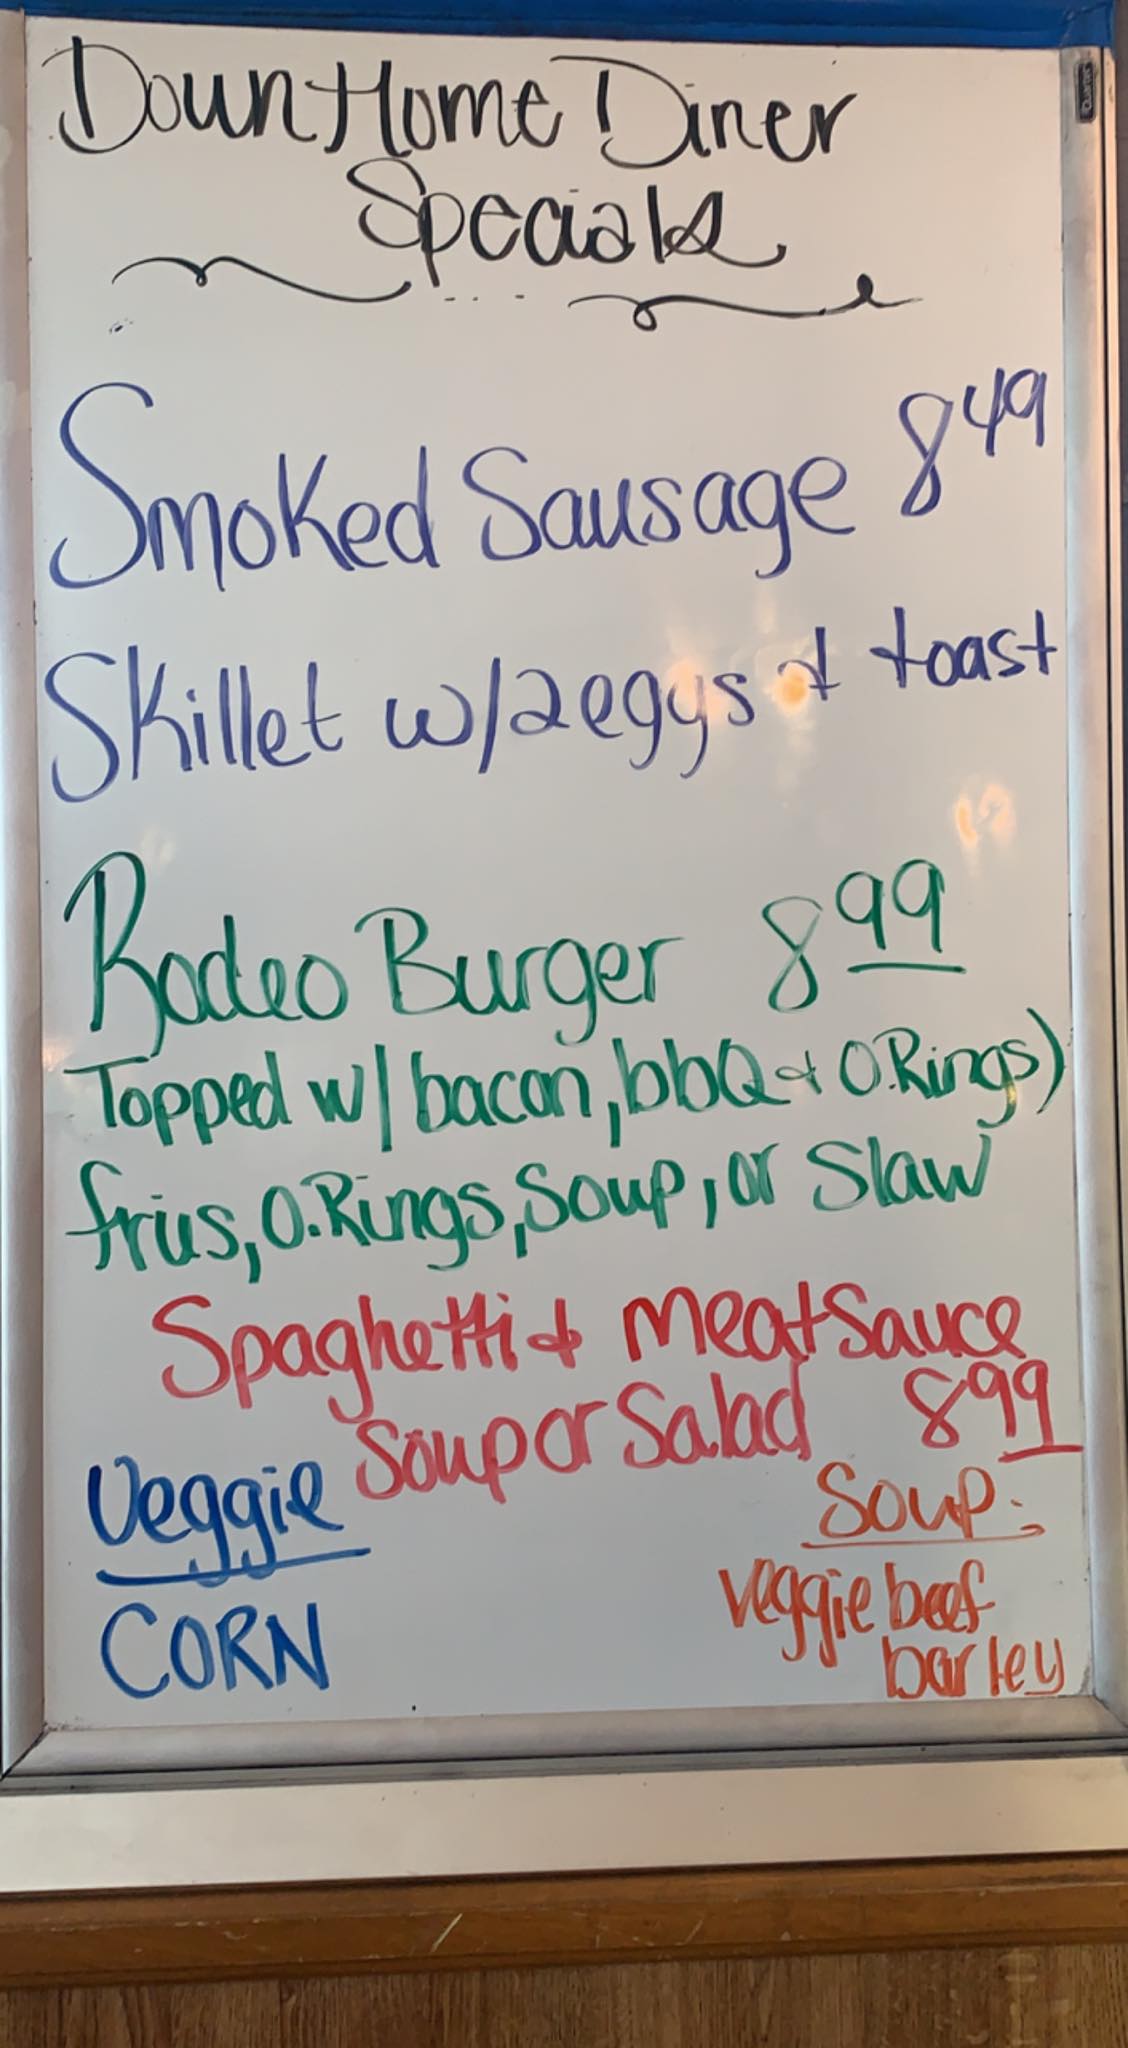 Down Home Diner
Specials
Smoked Sausage 8 49
Skillet w/2 eggs & toast
Rodeo Burger 8 99
Topped w/ bacon, bbQ & O.Rings)
fries, O.Rings, Soup, or Slaw
Spaghetti & Meat Sauce
Soup or Salad 8 99
Veggie
CORN
Soup:
Veggie beef
barley
Quartet